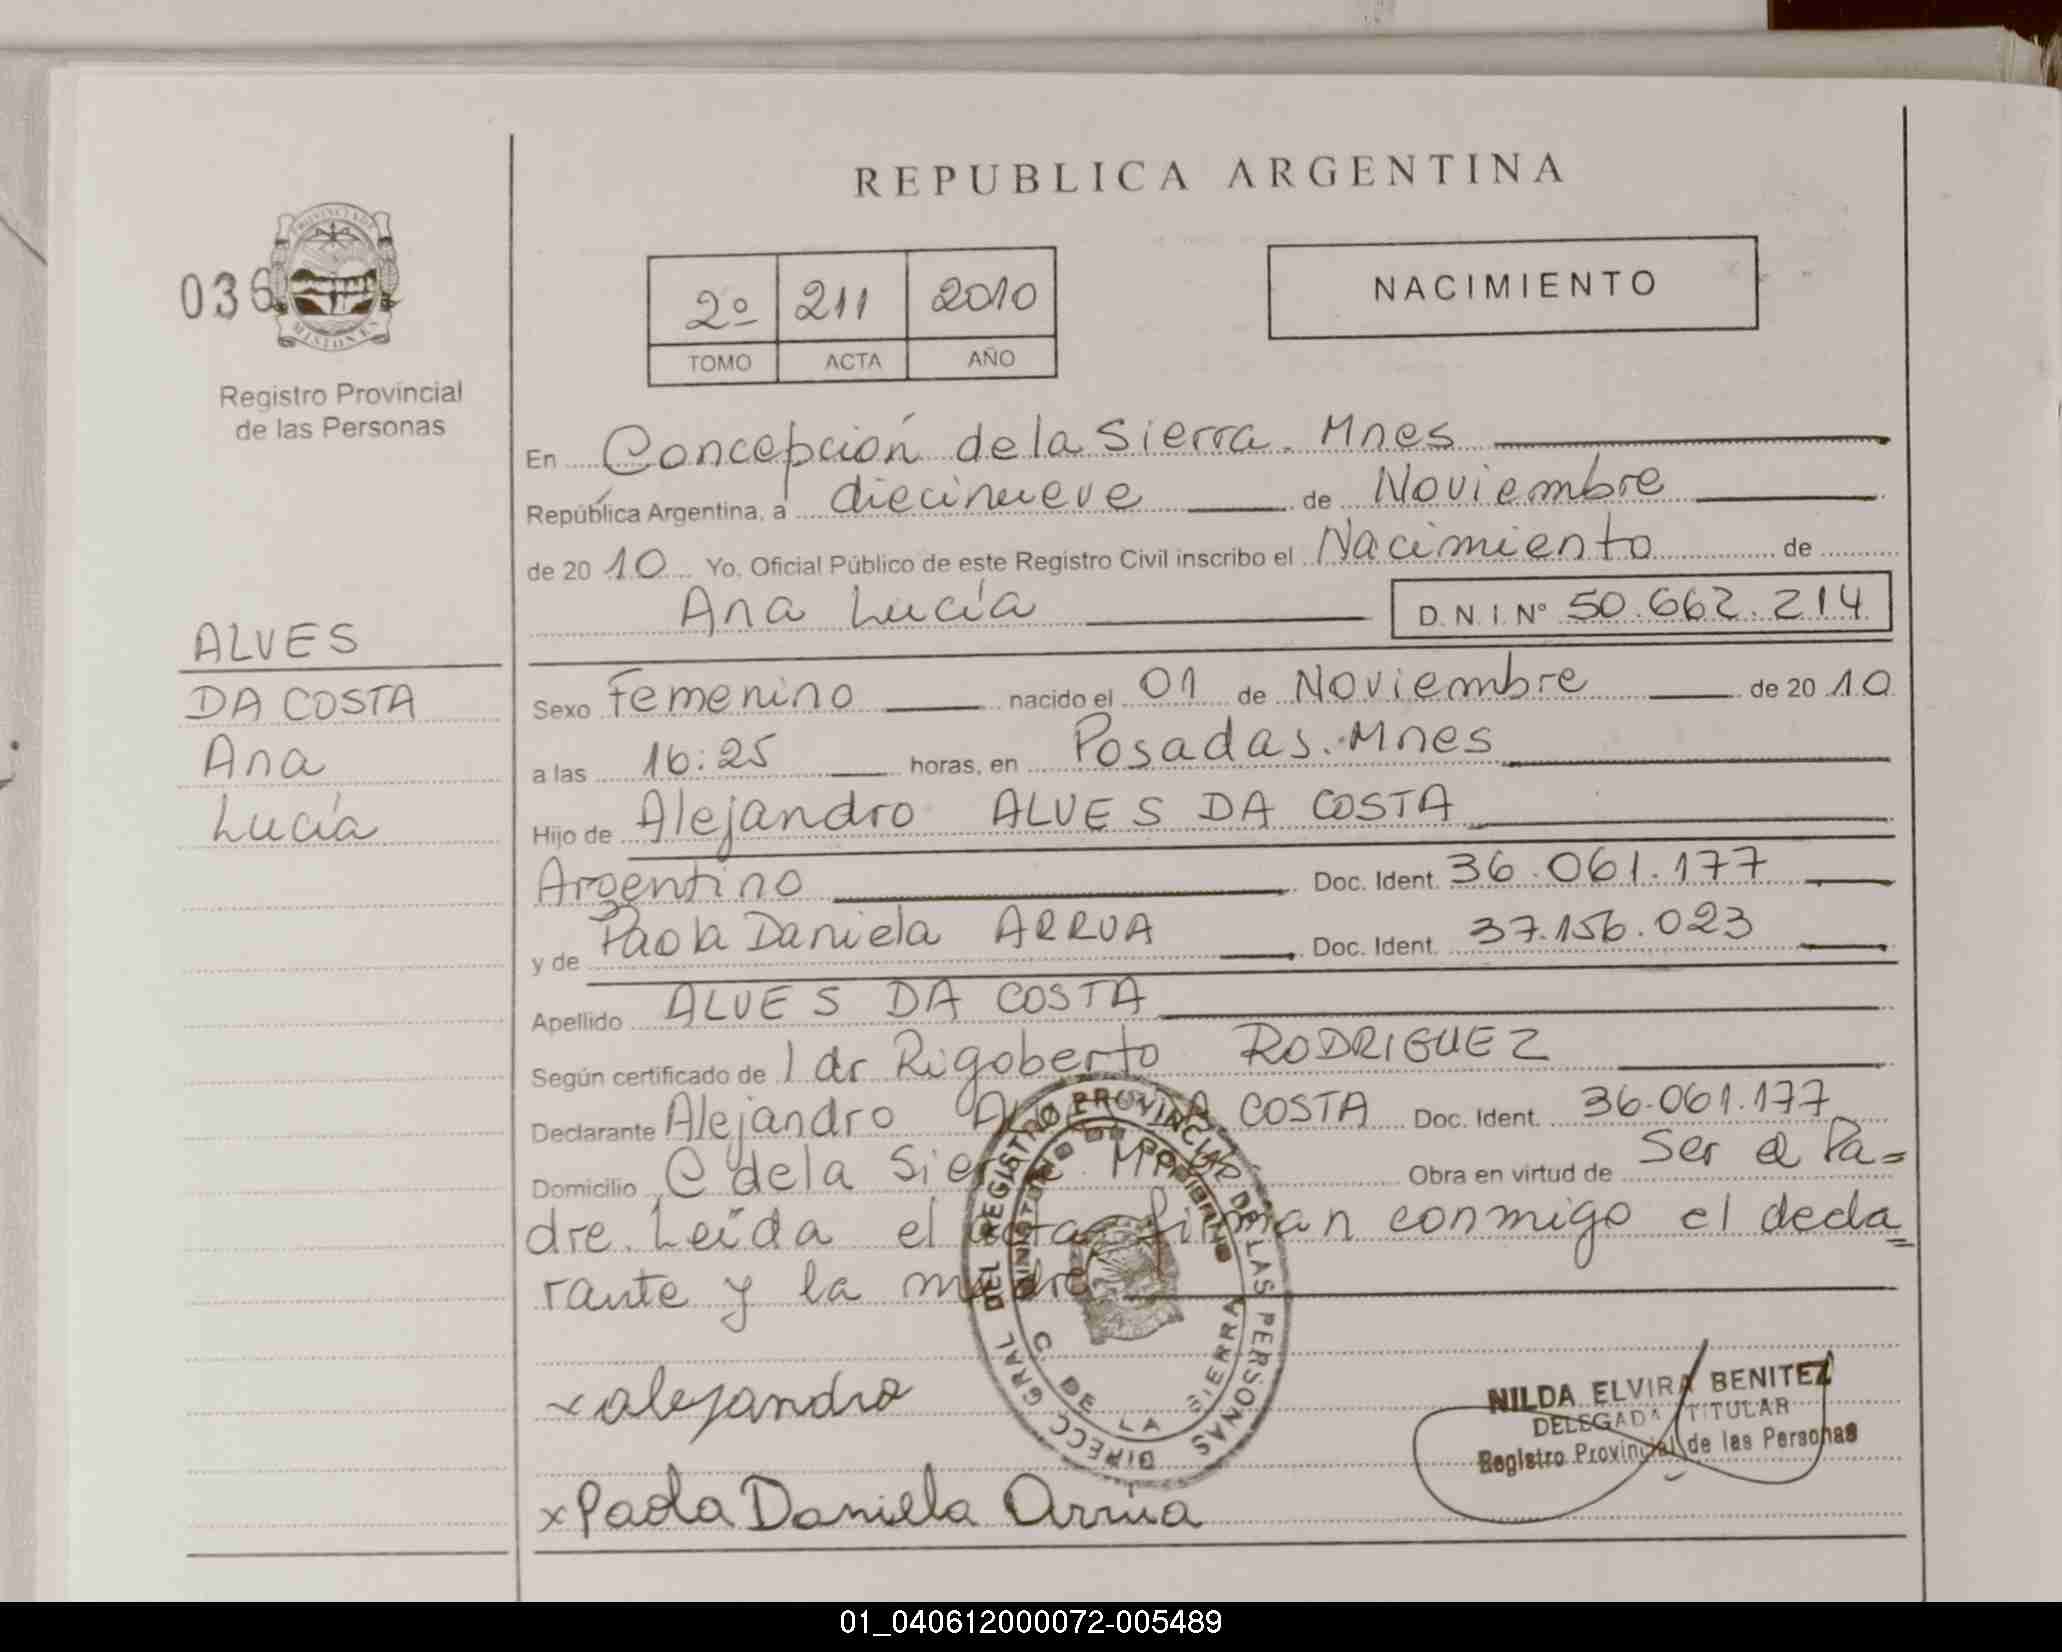 REPUBLICA ARGENTINA
036
PROVINCIA DE
MISIONES
Registro Provincial
de las Personas
2º 211 2010
TOMO ACTA AÑO
NACIMIENTO
En Concepción de la Sierra. Mnes
República Argentina, a diecinueve de Noviembre
de 2010 Yo, Oficial Público de este Registro Civil inscribo el Nacimiento de
Ana Lucía D.N.I. Nº 50.662.214
ALVES
DA COSTA
Ana
Lucía
Sexo Femenino nacido el 01 de Noviembre de 2010
a las 16:25 horas, en Posadas. Mnes
Hijo de Alejandro ALVES DA COSTA
Argentino Doc. Ident. 36.061.177
y de Paola Daniela ARRUA Doc. Ident. 37.156.023
Apellido ALVES DA COSTA
Según certificado de l dr Rigoberto RODRIGUEZ
Declarante Alejandro COSTA Doc. Ident. 36.061.177
Domicilio C de la Sierra Obra en virtud de Ser el Pa=
dre. Leída el acta firman conmigo el decla=
rante y la madre
DIRECC GRAL DEL REGISTRO PROVINCIAL DE LAS PERSONAS
C. DE LA SIERRA
x alejandro
NILDA ELVIRA BENITEZ
DELEGADA TITULAR
Registro Provincial de las Personas
x Paola Daniela Arrua
01_040612000072-005489